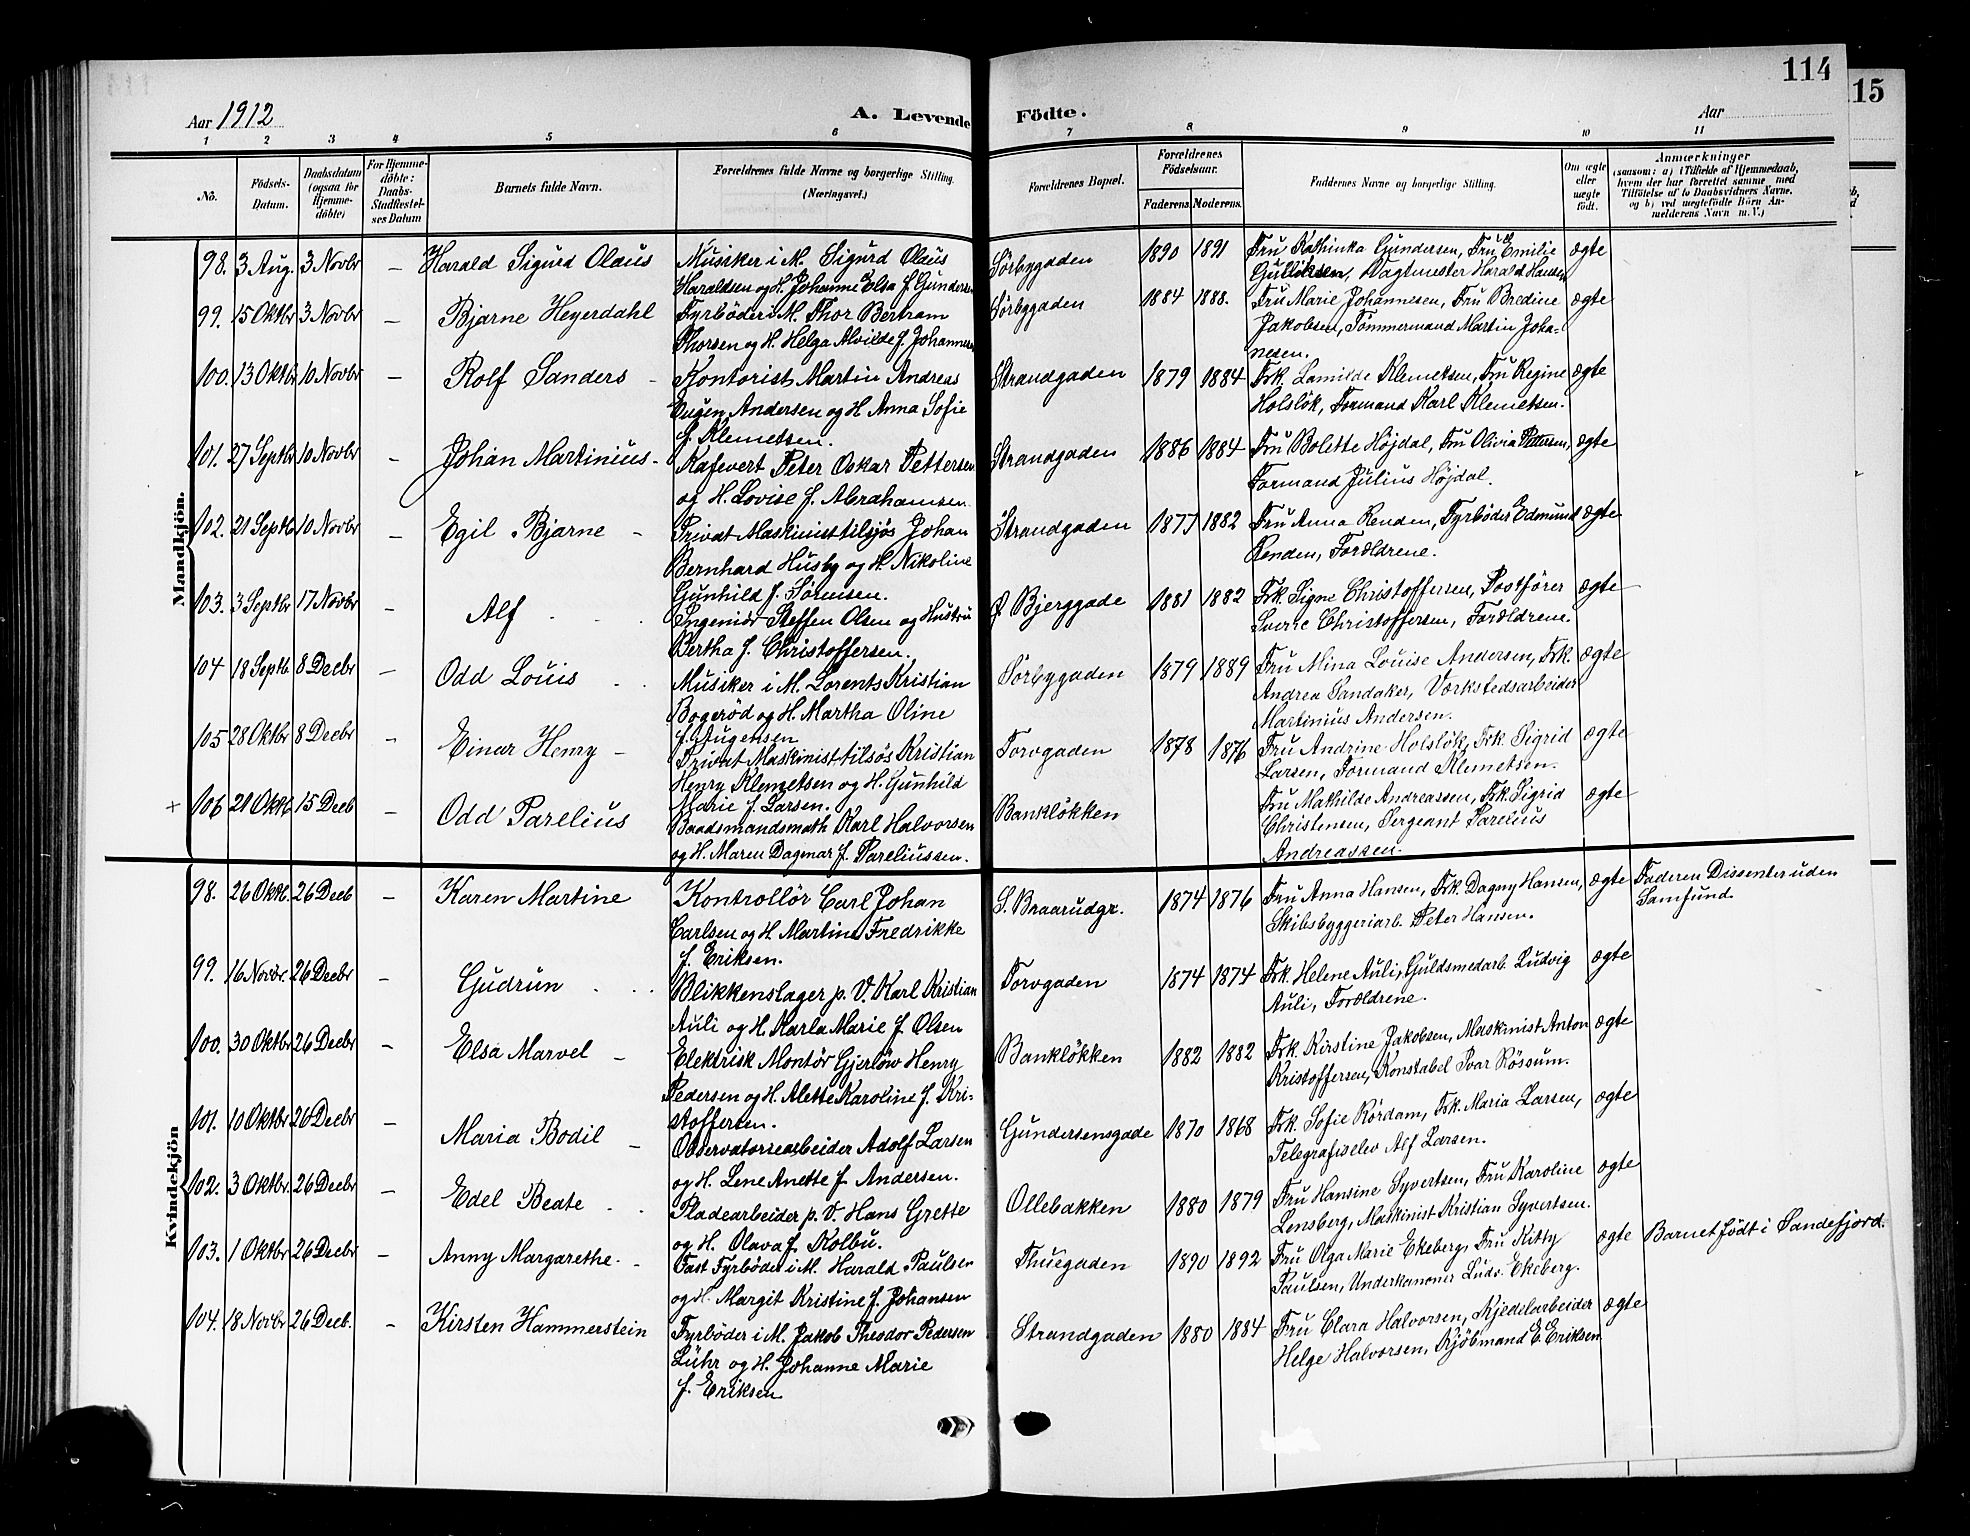 114
15
Aar 1912
A. Levende Födte.
Aar
1 2 3 4 5 6 7 8 9 10 11
No.
Födsels-
Datum.
Daabsdatum
(ogsaa for
Hjemme-
döbte)
For Hjemme-
döbte:
Daabs-
Stadfæstel-
ses Datum
Barnets fulde Navn.
Forældrenes fulde Navne og borgerlige Stilling.
(Næringsvei.)
Forældrenes Bopæl.
Forældrenes
Födselsaar.
Faderens. Moderens.
Faddernes Navne og borgerlige Stilling.
Om ægte
eller
uægte
födt.
Anmærkninger
(saasom: a) i Tilfælde af Hjemmedaab,
hvem der har forrettet samme med
Tilföielse af to Daabsvidners Navne.
og b) ved uegtefödte Börn An-
melderens Navn m. V.)
Mandkjön.
98. 3 Aug. 3 Novbr — Harald Sigurd Olaus
Musiker i M. Sigurd Olaus
Haraldsen og H. Johanne Elsa f. Gundersen
Sørbygaden 1890 1891
Fru Kathinka Gundersen, Fru Emilie
Gulliksen, Vagtmester Harald Hansen
ægte
99. 15 Oktbr 3 Novbr — Bjarne Heyerdahl
Fyrbøder i M. Thor Bertram
Thorsen og H. Helga Alvilde f. Johannesen
Sørbygaden 1884 1888.
Fru Marie Johannesen, Fru Bredine
Jakobsen, Tømmermand Martin Joha-
nesen.
ægte
100. 13 Oktbr 10 Novbr — Rolf Sanders
Kontorist Martin Andreas
Eugen Andersen og H. Anna Sofie
f. Klemetsen.
Strandgaden 1879 1884
Frk. Lamilde Klemetsen, Fru Regine
Holsløk, Formand Karl Klemetsen.
ægte
101. 27 Septbr 10 Novbr — Johan Martinius
Kafevert Peter Oskar Pettersen
og H. Lovise f. Abrahamsen
Strandgaden 1886 1884
Fru Bolette Højdal, Fru Olivia Pettersen,
Formand Julius Højdal.
ægte
102. 21 Septbr 10 Novbr — Egil Bjarne
Privat Maskinist tilsjøs Johan
Bernhard Husby og H. Nikoline
Gunhild f. Sørensen.
Strandgaden 1877 1882
Fru Anna Renden, Fyrbøder Edmund
Renden, Forældrene.
ægte
103. 3 Septbr 17 Novbr — Alf
Ingeniør Steffen Olsen og Hustru
Bertha f. Christoffersen.
Ø Bjerggade 1881 1882
Frk. Signe Christoffersen, Postfører
Sverre Christoffersen, Forældrene.
ægte
104 18 Septb. 8 Decbr — Odd Louis
Musiker i M. Lorents Kristian
Bogerød og H. Martha Oline
f. Augensen
Sørbygaden 1879 1889
Fru Mina Louise Andersen, Frk.
Andrea Sandaker, Værkstedsarbeider
Martinius Andersen.
ægte
105 28 Oktbr 8 Decbr — Einar Henry
Privat Maskinist tilsøs Kristian
Henry Klemetsen og H. Gunhild
Marie f. Larsen.
Torvgaden 1878 1876
Fru Andrine Holsløk, Frk. Sigrid
Larsen, Formand Klemetsen.
ægte
+ 106 21 Oktb 15 Decb — Odd Parelius
Baadsmandsmath Karl Halvorsen
og H. Maren Dagmar f. Pareliussen.
Bankløkken
Fru Mathilde Andreassen, Frk. Sigrid
Christensen, Sergeant Parelius
Andreassen.
ægte
Kvindekjön
98. 26 Oktb. 26 Decb — Karen Martine
Kontrollør Carl Johan
Carlsen og H. Martine Fredrikke
f. Eriksen.
S. Braarudgt. 1874 1876
Fru Anna Hansen, Frk. Dagny Hansen,
Skibsbyggeriarb. Peter Hansen.
ægte
Faderen Dissenter uden
Samfund.
99. 16 Novbr. 26 Decbr — Gudrun
Blikkenslager p. V. Karl Kristian
Auli og H. Karla Marie f. Olsen
Torvgaden 1874 1874
Frk. Helene Auli, Guldsmedarb. Ludvig
Auli, Forældrene.
ægte
100. 30 Oktbr 26 Decbr — Elsa Marvel
Elektrisk Montør Gjerløw Henry
Pedersen og H. Alette Karoline f. Kri-
stoffersen.
Bankløkken 1882 1882
Frk. Kirstine Jakobsen, Maskinist Anton
Kristoffersen, Konstabel Ivar Røssum.
ægte
101. 10 Oktbr 26 Decbr — Maria Bodil
Observatoriearbeider Adolf Larsen
og H. Lene Anette f. Andersen.
Gundersensgade 1870 1868
Frk. Sofie Rørdam, Frk. Maria Larsen,
Telegrafiselev Alf Larsen.
ægte
102. 3 Oktbr. 26 Decbr — Edel Beate
Pladearbeider p. V. Hans Grette
og H. Olava f. Kolbu.
Ollebakken 1880 1879
Fru Hansine Syvertsen, Fru Karoline
Lensberg, Maskinist Kristian Syvertsen.
ægte
103. 1 Oktbr 26 Decbr — Anny Margarethe
Fast Fyrbøder i M. Harald Paulsen
og H. Margit Kristine f. Johansen
Thuegaden 1890 1892
Fru Olga Marie Ekeberg, Fru Kitty
Paulsen, Underkanoner Ludv. Ekeberg.
ægte
Barnet født i Sandefjord.
104. 18 Novbr 26 Decb. — Kirsten Hammerstein
Fyrbøder i M. Jakob Theodor Pedersen
Lühr og H. Johanne Marie
f. Eriksen
Strandgaden 1880 1884
Fru Clara Halvorsen, Kjedelarbeider
Helge Halvorsen, Kjøbmand E. Eriksen
ægte